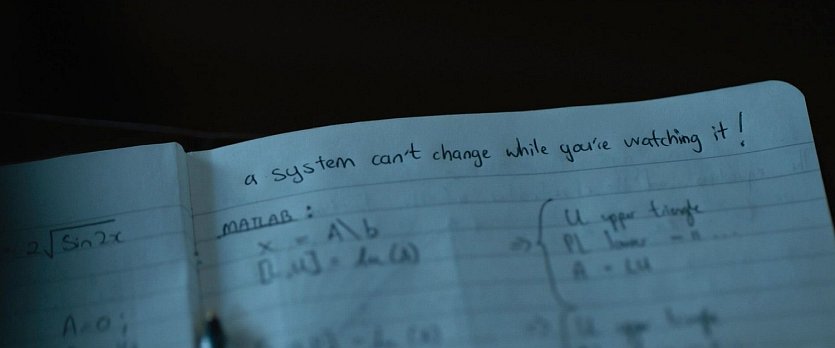 a system can't change while you're watching it!
2√sin2x
MATLAB:
x = A\b
[L,U] = lu(A)
A=0;
⇒ { U upper triangle
PL lower
A = LU
U upper triangle